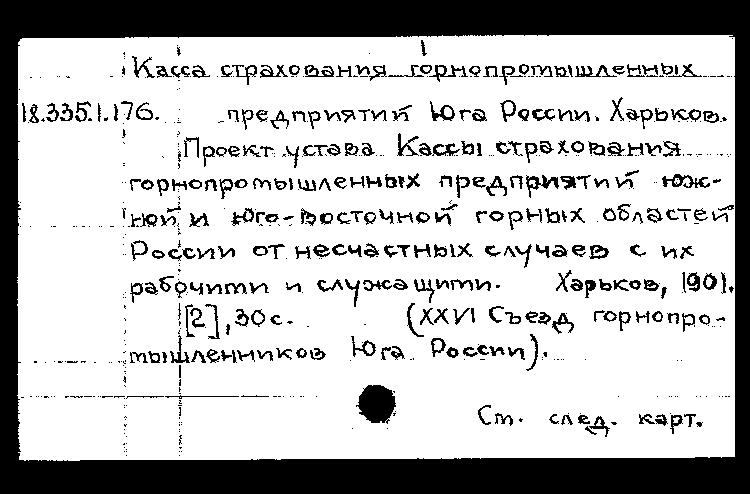 Касса страхования горнопромышленных
18.335.1.176. предприятий Юга России. Харьков.
Проект устава Кассы страхования
горнопромышленных предприятий юж-
ной и юго-восточной горных областей
России от несчастных случаев с их
рабочими и служащими. Харьков, 1901.
[2], 30 с. (XXVI Съезд горнопро-
мышленников Юга России).
См. след. карт.